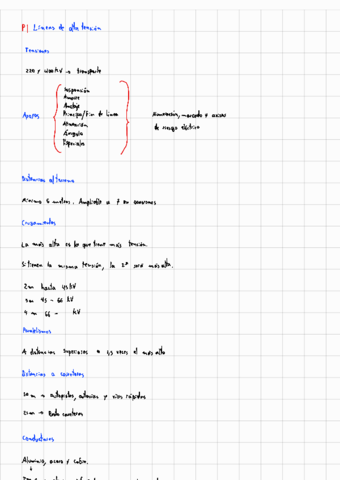 P| Líneas de alta tensión
Tensiones
220 y 400 kV → transporte
Apoyos
Suspensión
Amarre
Anclaje
Principio/Fin de línea
Alineación
Ángulo
Especiales
Numeración, marcado y avisos
de riesgo eléctrico
Distancias al terreno
Mínimo 6 metros. Ampliable a 7 en
Cruzamientos
La más alta es la que tiene más tensión.
Si tienen la misma tensión, la 2ª será más alta.
2 m hasta 45 kV
3 m 45 - 66 kV
4 m 66 - kV
Paralelismos
A distancias superiores a 1,5 veces el más alto
Distancias a carreteras
50 m → autopistas, autovías y vías rápidas
25 m → Resto carreteras
Conductores
Aluminio, acero y cobre.